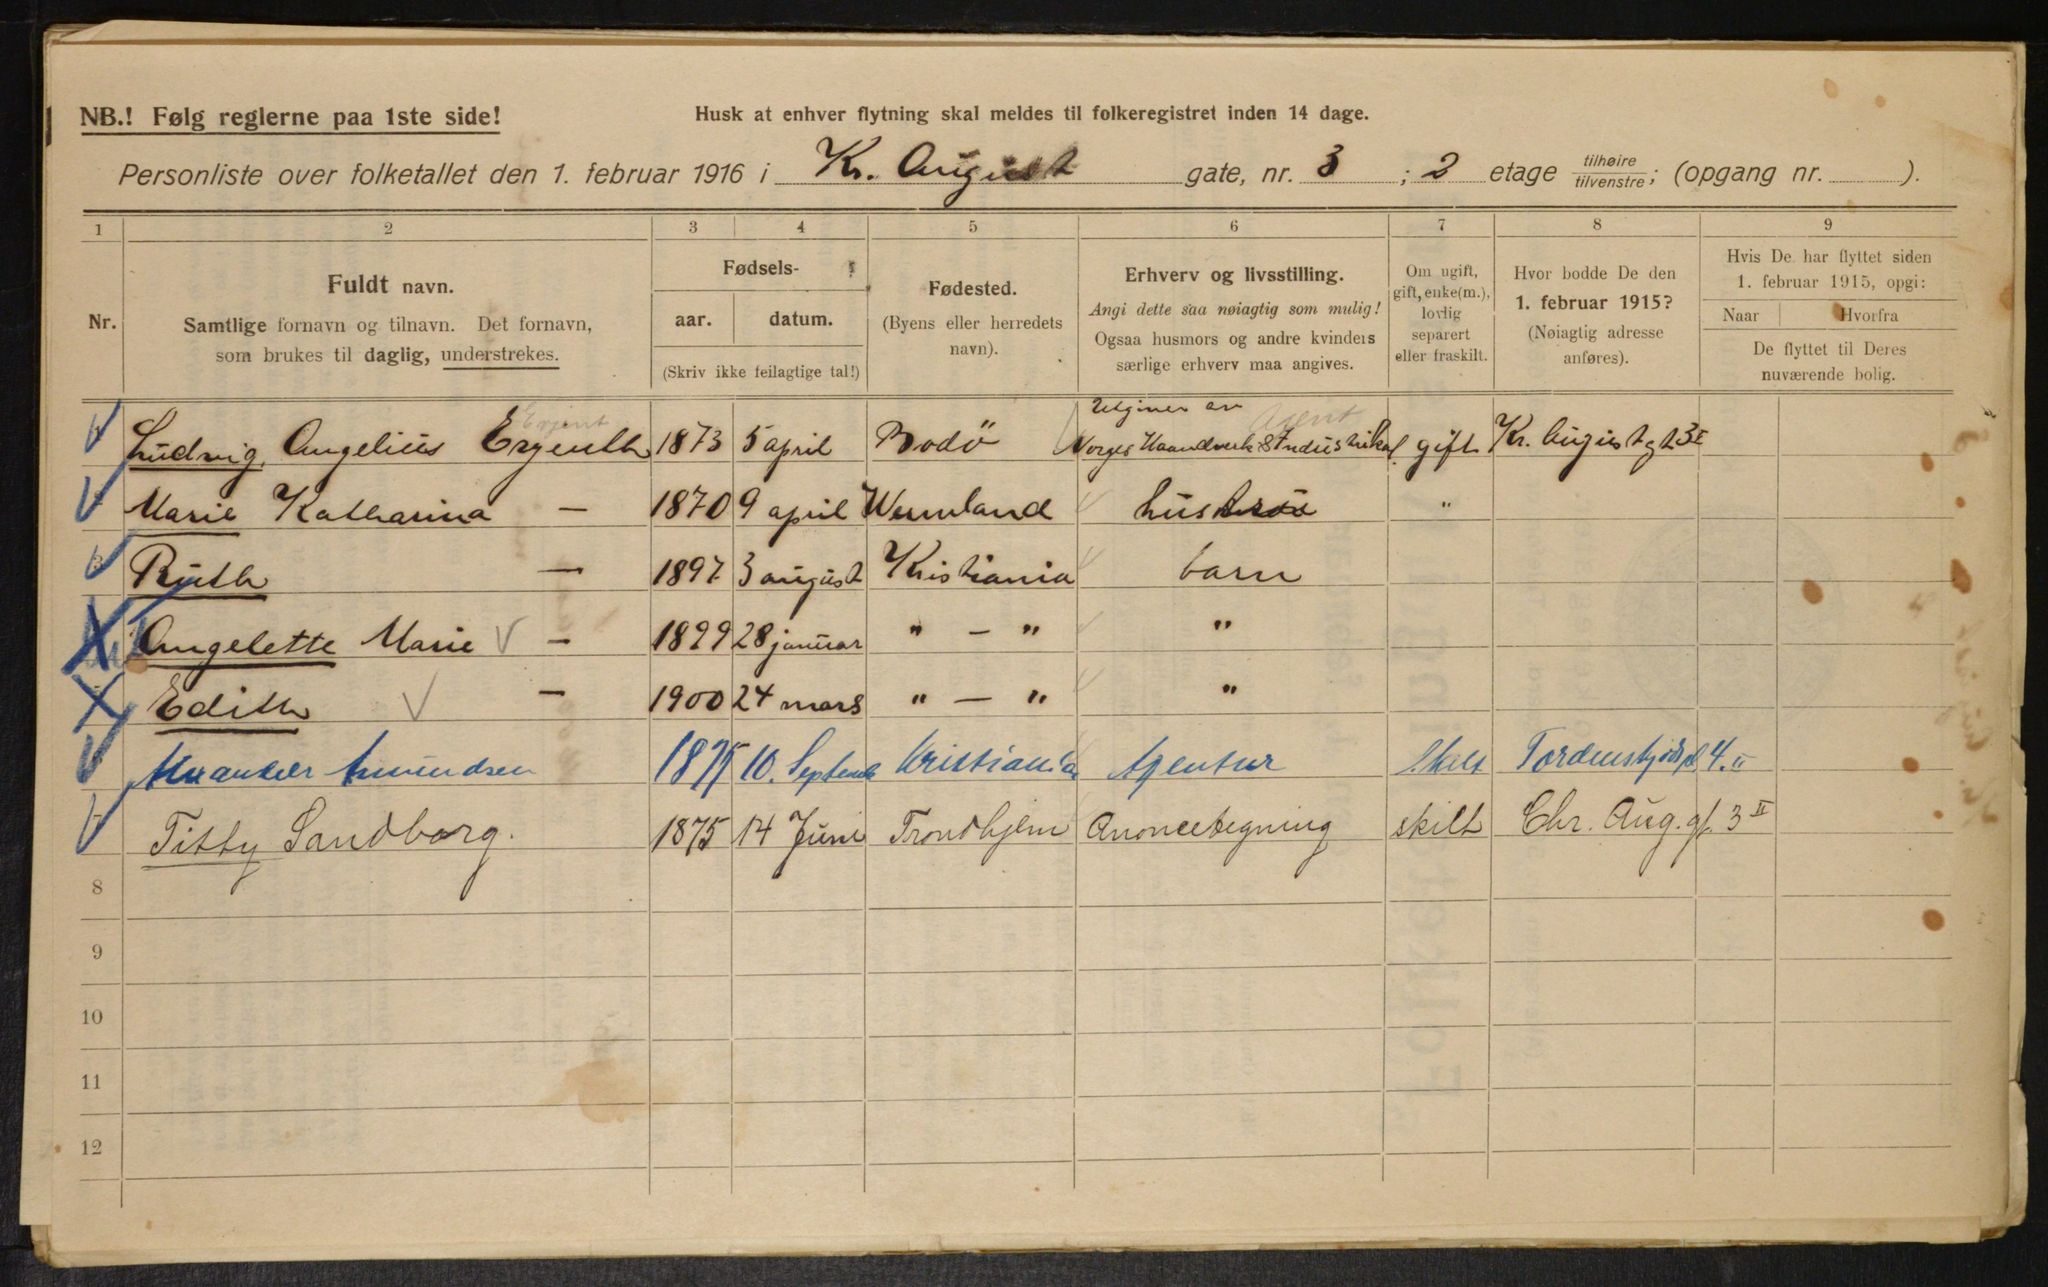 NB.! Følg reglerne paa 1ste side!
Husk at enhver flytning skal meldes til folkeregistret inden 14 dage.
Personliste over folketallet den 1. februar 1916 i Kr. August gate, nr. 3 ; 2 etage tilhøire tilvenstre; (opgang nr. ).
1 2 3 4 5 6 7 8 9
Nr.
Fuldt navn.
Samtlige fornavn og tilnavn. Det fornavn,
som brukes til daglig, understrekes.
Fødsels-
aar. datum.
(Skriv ikke feilagtige tal!)
Fødested.
(Byens eller herredets
navn).
Erhverv og livsstilling.
Angi dette saa nøiagtig som mulig!
Ogsaa husmors og andre kvinders
særlige erhverv maa angives.
Om ugift,
gift, enke(m.),
lovlig
separert
eller fraskilt.
Hvor bodde De den
1. februar 1915?
(Nøiagtig adresse
anføres).
Hvis De har flyttet siden
1. februar 1915, opgi:
Naar Hvorfra
De flyttet til Deres
nuværende bolig.
Utgiver av Agent
Ludwig Angelius 1873 5 april Bodö Norges Haandverk & Industrikal. gift Kr. August gt 3 II
Marie Katharina — 1870 9 april Wermland hustru "
Ruth — 1897 3 august Kristiania barn
Angelette Marie — 1899 28 januar " — " "
Edith — 1900 24 mars " — " "
Amundsen 10. Septemb Kristiania Agentur Skilt 4. II
Titty Sandborg. 1875 14 Juni Trondhjem Anoncetegning skilt Chr. Aug. gt. 3 II
8
9
10
11
12